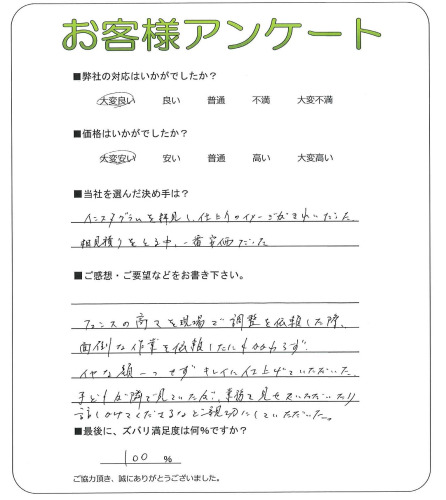 お客様アンケート
■弊社の対応はいかがでしたか？
大変良い 良い 普通 不満 大変不満
■価格はいかがでしたか？
大変安い 安い 普通 高い 大変高い
■当社を選んだ決め手は？
インスタグラムを拝見し、仕上りのイメージがきれいだった。
相見積りをとる中、一番安価だった
■ご感想・ご要望などをお書き下さい。
フェンスの高さを現場で調整を依頼した際、
面倒な作業を依頼したにもかかわらず、
イヤな顔一つせずキレイに仕上げていただいた。
子どもが隣で見ていたが、見せていただいたり
話しかけてくださるなど親切にしていただいた。
■最後に、ズバリ満足度は何％ですか？
100 ％
ご協力頂き、誠にありがとうございました。